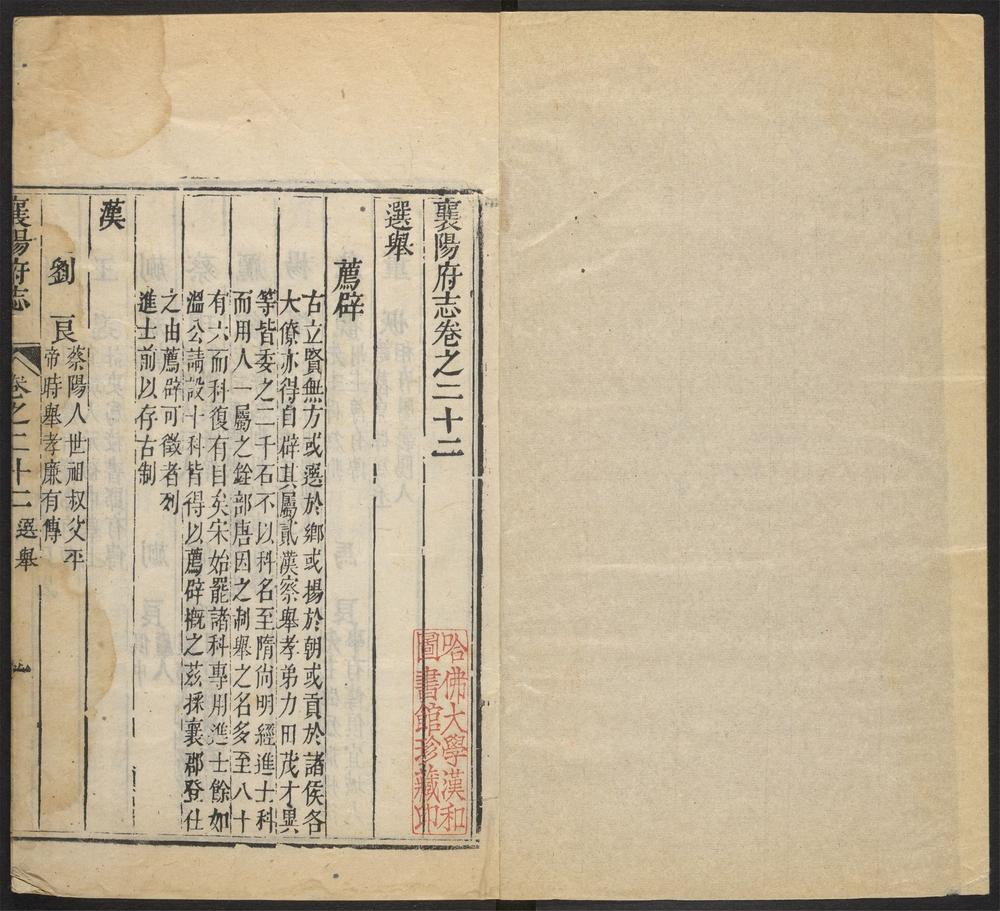 襄陽府志卷之二十二
選舉
薦辟
古立賢無方或選於鄉或揚於朝或貢於諸侯各
大僚亦得自辟其屬貳漢察舉孝弟力田茂才異
等皆委之二千石不以科名至隋尚明經進士科
而用人一屬之銓部唐因之制舉之名多至八十
有六而科復有目矣宋始罷諸科專用進士餘如
溫公請設十科皆得以薦辟概之茲採襄郡登仕
之由薦辟可徵者列
進士前以存古制
漢
劉良
蔡陽人世祖叔父平
帝時舉孝廉有傳
襄陽府志 卷之二十二 選舉 一
哈佛大學漢和
圖書館珍藏印